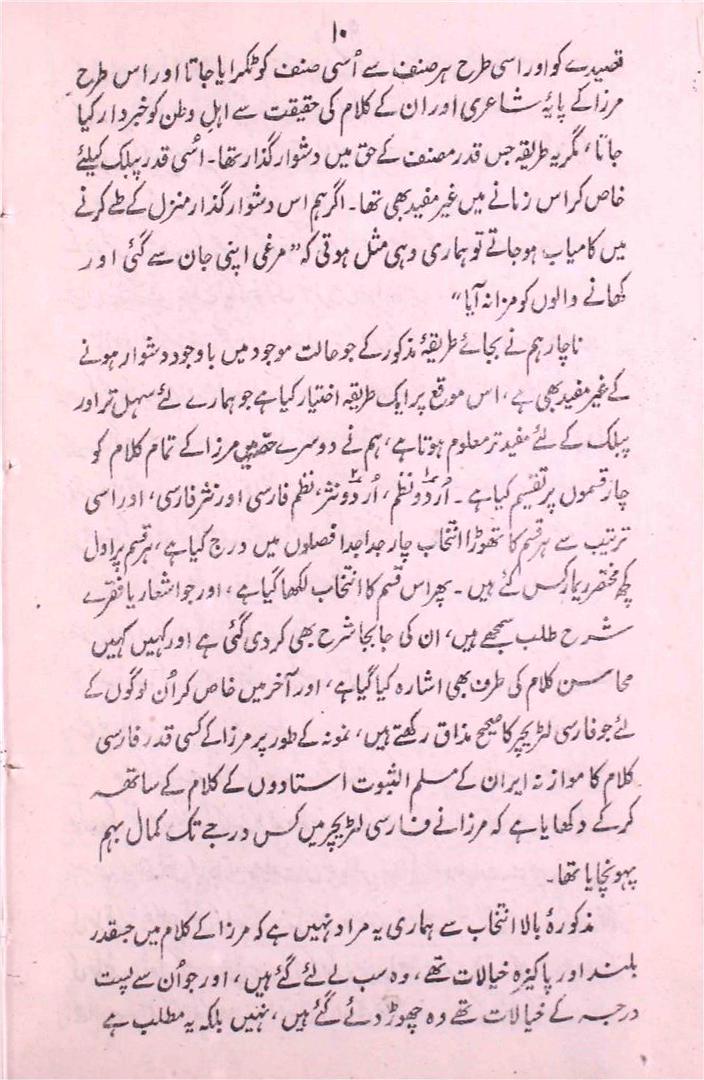 ۱۰
قصیدے کو اور اسی طرح ہر صنف سے اُسی صنف کو ٹکرایا جاتا اور اس طرح
مرزا کے پایۂ شاعری اور ان کے کلام کی حقیقت سے اہلِ وطن کو خبردار کیا
جاتا، مگر یہ طریقہ جس قدر مصنف کے حق میں دشوار گذار تھا۔ اُسی قدر پبلک کیلئے
خاص کر اس زمانے میں غیر مفید بھی تھا۔ اگر ہم اس دشوار گذار منزل کے طے کرنے
میں کامیاب ہو جاتے تو ہماری وہی مثل ہوتی کہ ”مرغی اپنی جان سے گئی اور
کھانے والوں کو مزا نہ آیا“
ناچار ہم نے بجائے طریقۂ مذکور کے جو حالت موجود میں باوجود دشوار ہونے
کے غیر مفید بھی ہے، اس موقع پر ایک طریقہ اختیار کیا ہے جو ہمارے لئے سہل تر اور
پبلک کے لئے مفید تر معلوم ہوتا ہے، ہم نے دوسرے حصّہ میں مرزا کے تمام کلام کو
چار قسموں پر تقسیم کیا ہے۔ اُردو نظم، اُردو نثر، نظم فارسی اور نثر فارسی، اور اسی
ترتیب سے ہر قسم کا تھوڑا انتخاب چار جدا جدا فصلوں میں درج کیا ہے، ہر قسم پر اول
کچھ مختصر ریمارکس کئے ہیں۔ پھر اس قسم کا انتخاب لکھا گیا ہے، اور جو اشعار یا فقرے
شرح طلب سمجھے ہیں، ان کی جابجا شرح بھی کر دی گئی ہے اور کہیں کہیں
محاسن کلام کی طرف بھی اشارہ کیا گیا ہے، اور آخر میں خاص کر اُن لوگوں کے
لئے جو فارسی لٹریچر کا صحیح مذاق رکھتے ہیں، نمونہ کے طور پر مرزا کے کسی قدر فارسی
کلام کا موازنہ ایران کے مسلم الثبوت استادوں کے کلام کے ساتھ
کر کے دکھایا ہے کہ مرزا نے فارسی لٹریچر میں کس درجے تک کمال بہم
پہونچایا تھا۔
مذکورۂ بالا انتخاب سے ہماری یہ مراد نہیں ہے کہ مرزا کے کلام میں جسقدر
بلند اور پاکیزہ خیالات تھے، وہ سب لے لئے گئے ہیں، اور جو اُن سے پست
درجہ کے خیالات تھے وہ چھوڑ دئے گئے ہیں، نہیں بلکہ یہ مطلب ہے